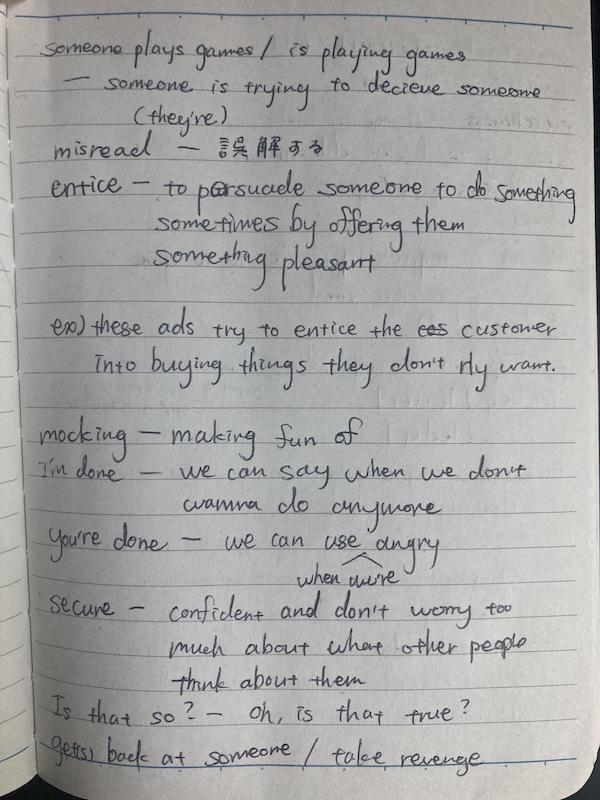 someone plays games / is playing games
— someone is trying to decieve someone
(they're)
misread — 誤解する
entice — to persuade someone to do something
sometimes by offering them
something pleasant
ex) these ads try to entice the customer
into buying things they don't rly want.
mocking — making fun of
I'm done — we can say when we don't
wanna do anymore
you're done — we can use angry
when we're
secure — confident and don't worry too
much about what other people
think about them
Is that so? — Oh, is that true?
get(s) back at someone / take revenge